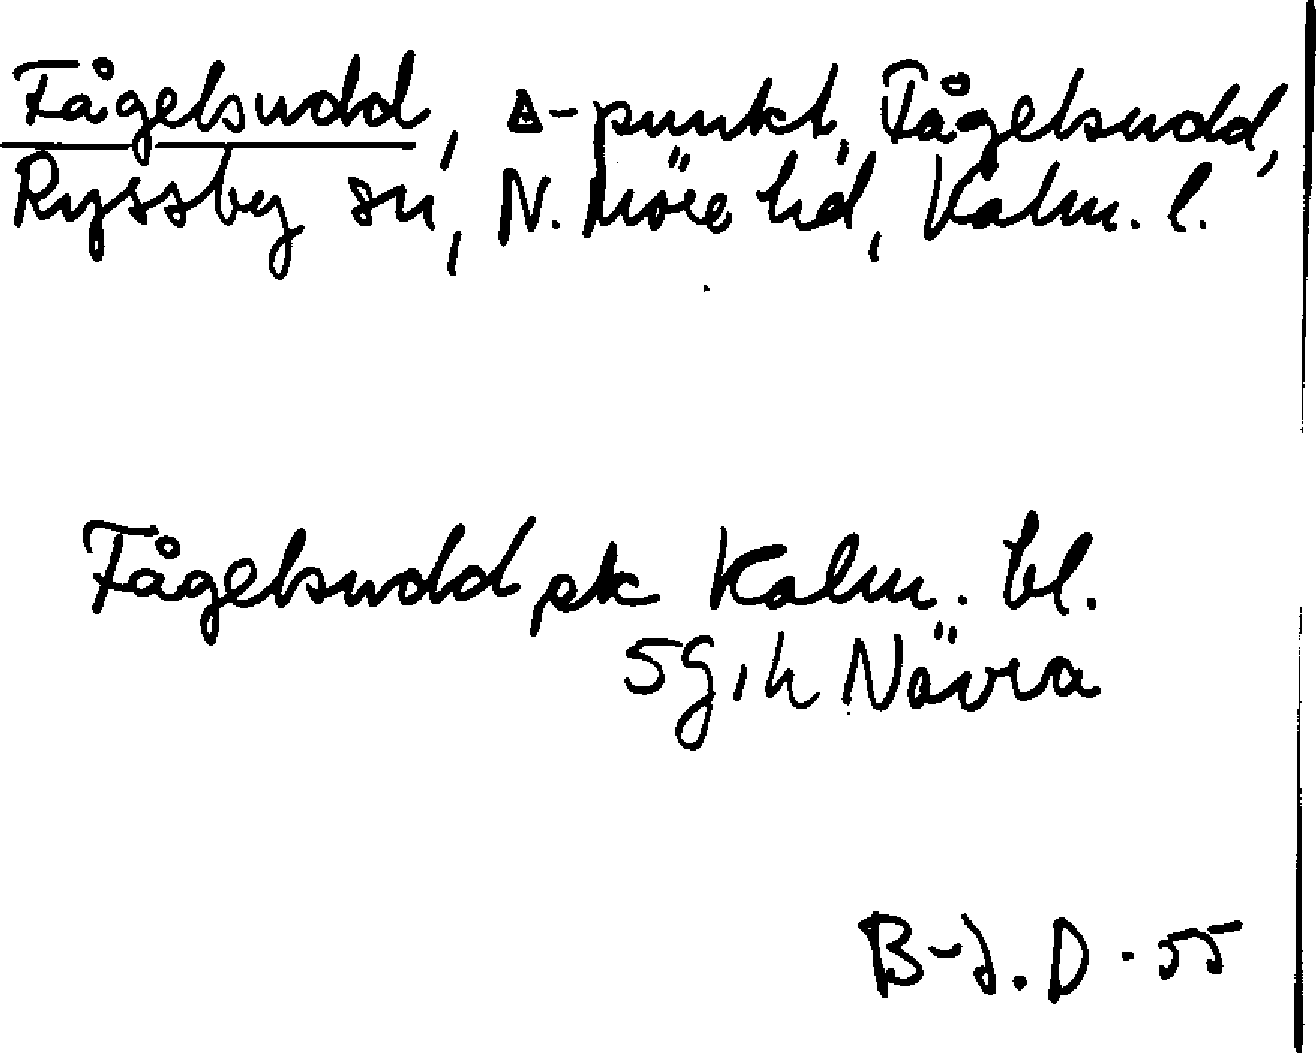 Fågelsudd, ∆-punkt, Fågelsudd,
Ryssby sn, N. Möre hd, Kalm. l.
Fågelsudd, ek Kalm. bl.
5G, h Nävra
B-J. D - 55